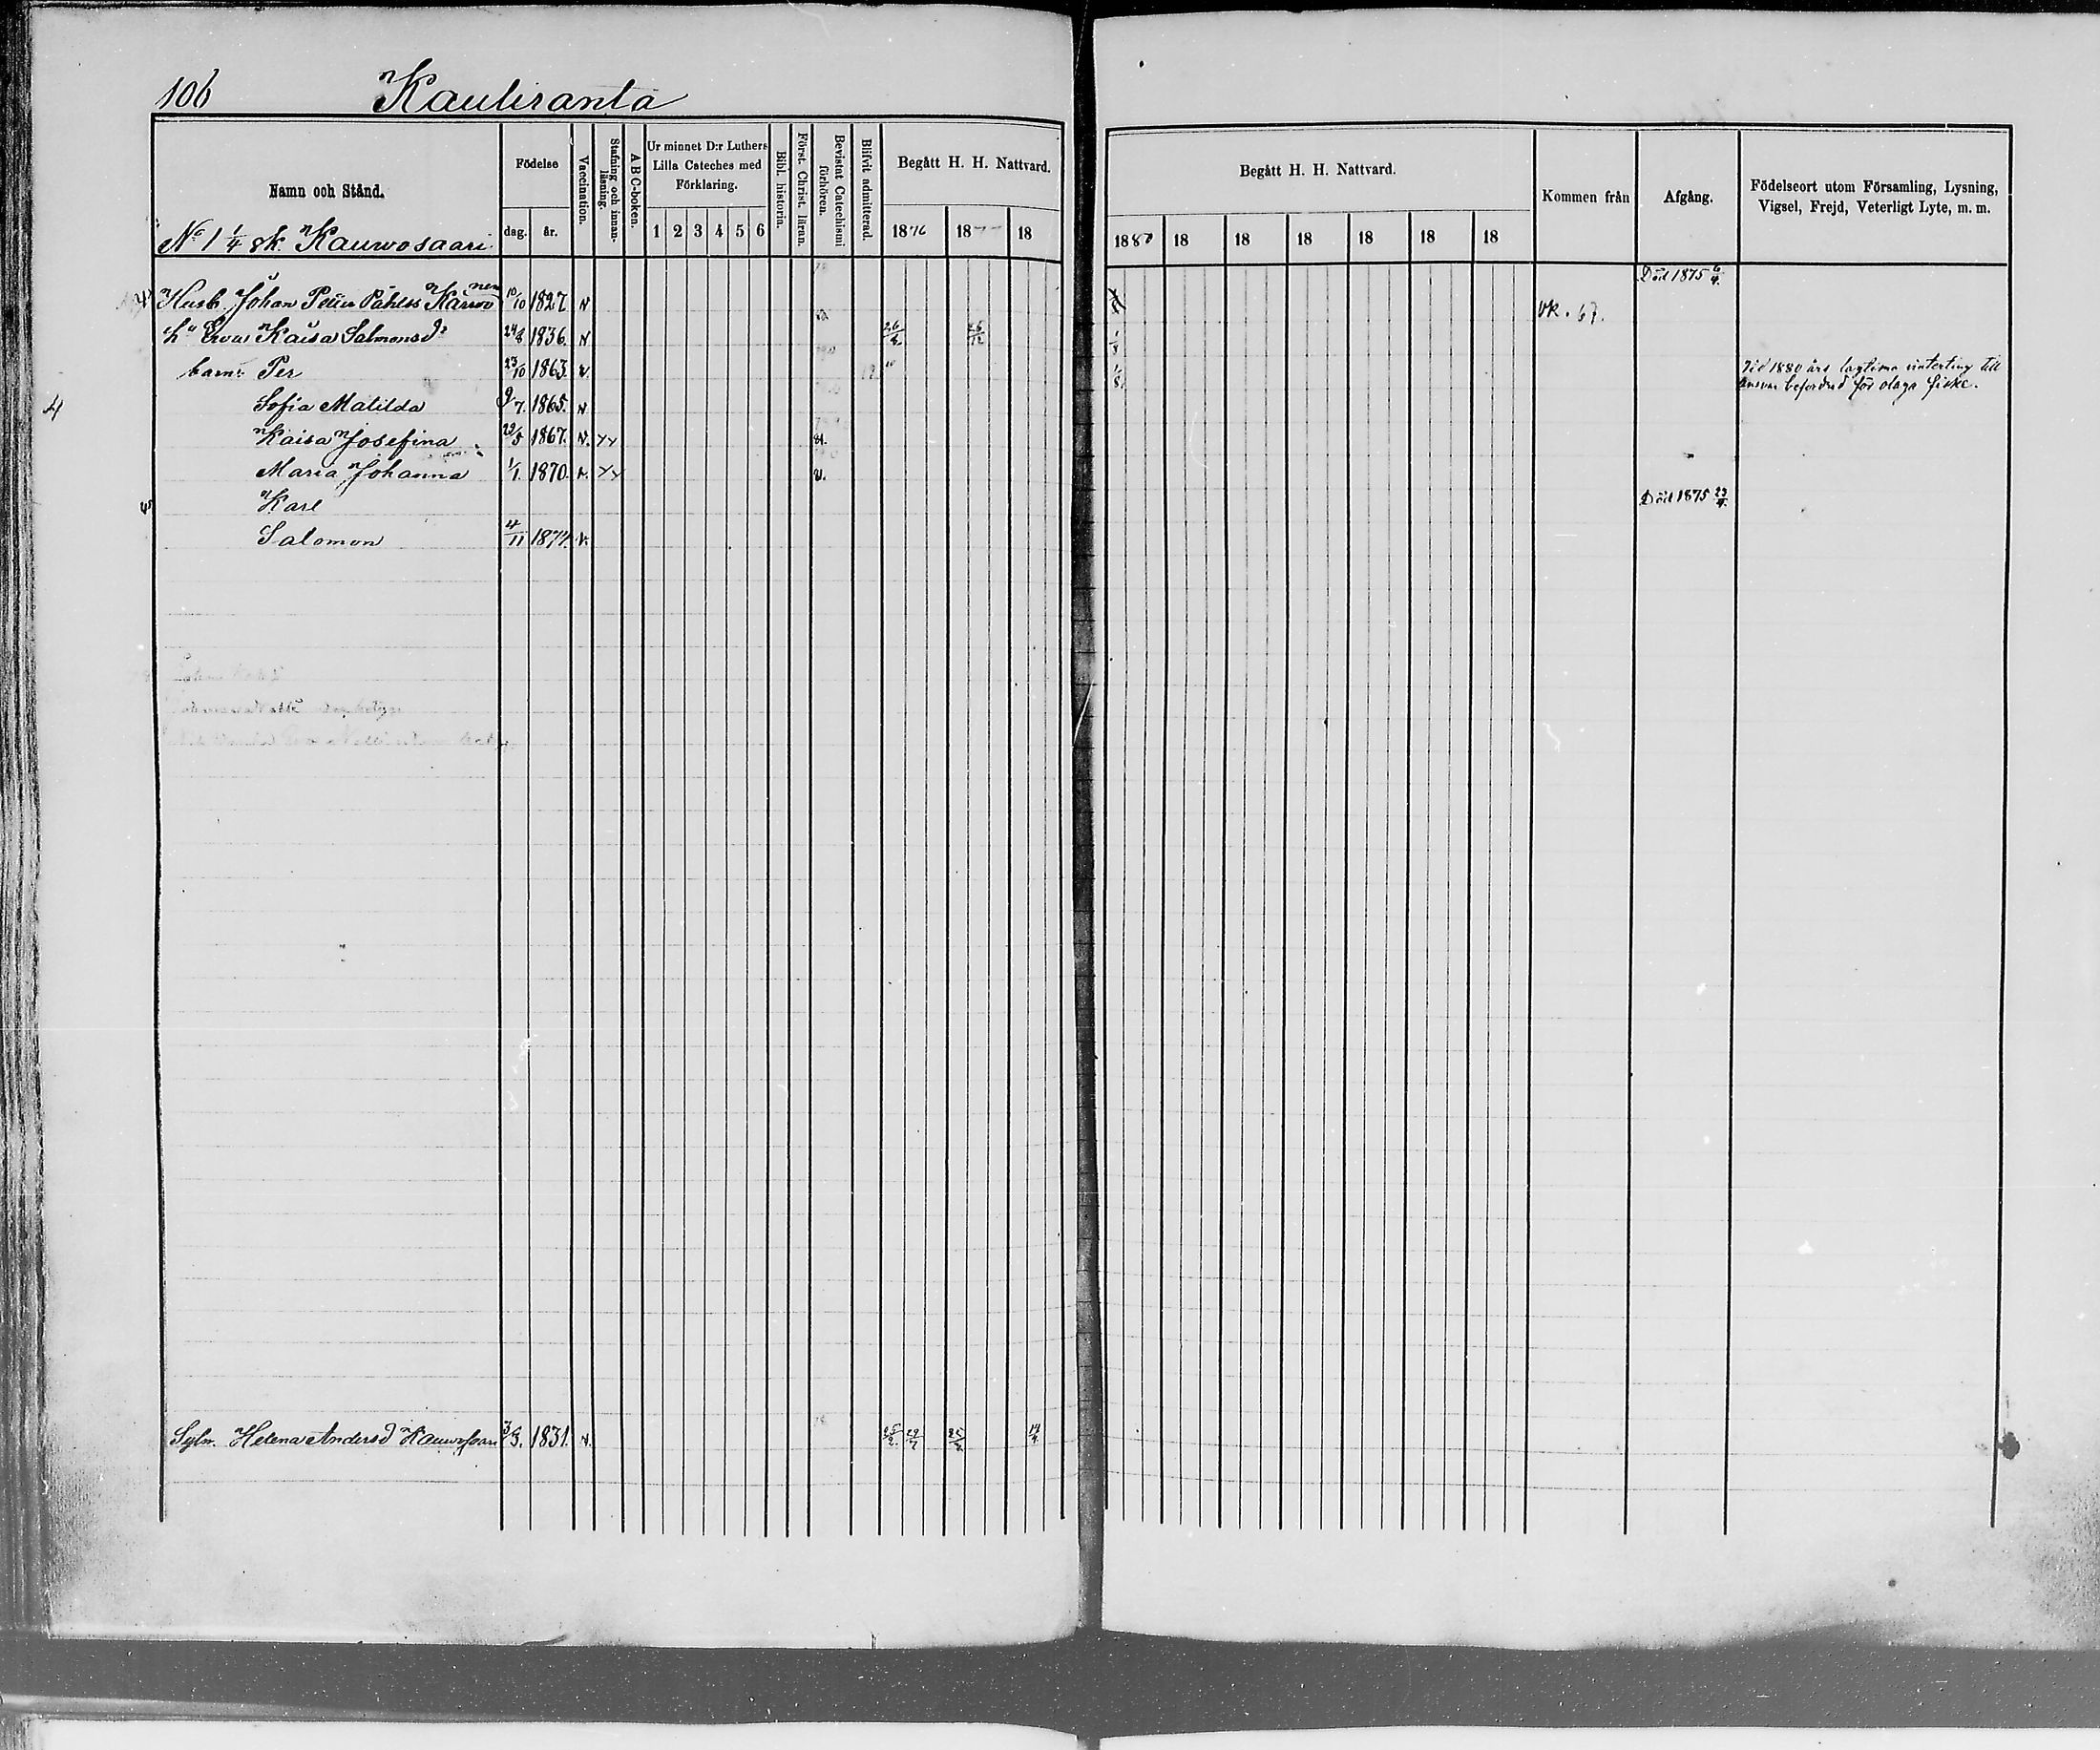 106 Kauliranta
Namn och Stånd.
Födelse
dag. år.
Vaccination.
Stafning och innanläsning.
ABC-boken.
Ur minnet D:r Luthers
Lilla Cateches med
Förklaring.
1 2 3 4 5 6
Bibl. historia.
Först. Christ. läran.
Bevistat Catechismi
förhören.
Blifvit admitterad.
Begått H. H. Nattvard.
1876 18 18
Begått H. H. Nattvard.
1880 18 18 18 18 18 18
Kommen från
Afgång.
Födelseort utom Församling, Lysning,
Vigsel, Frejd, Veterligt Lyte, m. m.
No 1 1/4 sk. Kauwosaari
Husb. Johan Petter Påhlss 10/10 1827 v Död 1875 6/4
h:u Eva Kaisa Salmonsd:r 24/8 1836. v 1/8 vk. 67.
barn: Per 23/10 1863. v. 1/8 Vid 1880 års lagtima vinterting till
ansvar befordrad för olaga fiske.
4 Sofia Matilda 9/7. 1865. v
Kaisa Josefina 1867. v. xx
Maria Johanna 1/1. 1870. v. xx v.
Karl Död 1875
Salomon 4/11 1877. v.
Helena Andersd 1831. v. 14/4